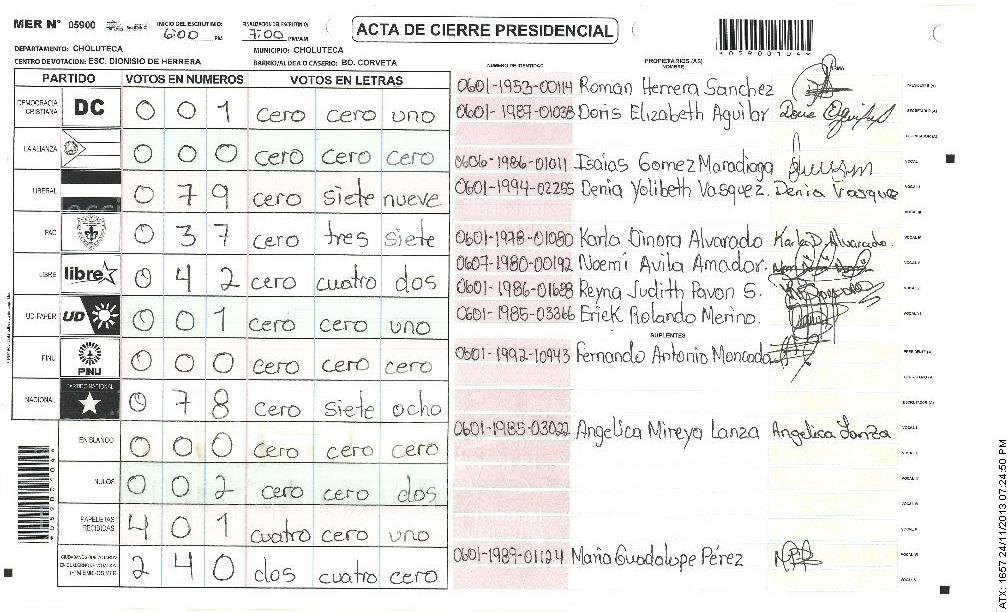 MER N° 05900 INICIO DEL ESCRUTINIO: 6:00 PM FINALIZACION DEL ESCRUTINIO: 7:00 PM/AM ACTA DE CIERRE PRESIDENCIAL
DEPARTAMENTO: CHOLUTECA MUNICIPIO: CHOLUTECA
CENTRO DE VOTACION: ESC. DIONISIO DE HERRERA BARRIO/ALDEA O CASERIO: BO. CORVETA
NUMERO DE IDENTIDAD PROPIETARIOS (AS) NOMBRE FIRMA
PARTIDO VOTOS EN NUMEROS VOTOS EN LETRAS
DEMOCRACIA CRISTIANA DC 0 0 1 cero cero uno
LA ALIANZA 0 0 0 cero cero cero
LIBERAL 0 7 9 cero siete nueve
PAC 0 3 7 cero tres siete
LIBRE libre 0 4 2 cero cuatro dos
UD-FAPER UD 0 0 1 cero cero uno
PINU PINU 0 0 0 cero cero cero
NACIONAL PARTIDO NACIONAL 0 7 8 cero siete ocho
EN BLANCO 0 0 0 cero cero cero
NULOS 0 0 2 cero cero dos
PAPELETAS RECIBIDAS 4 0 1 cuatro cero uno
2 4 0 dos cuatro cero
0601-1953-00114 Roman Herrera Sanchez
0601-1987-01038 Doris Elizabeth Aguilar
0606-1986-01011 Isaias Gomez Maradiaga
0601-1994-02255 Denia Yolibeth Vasquez. Denia Vasquez
0601-1978-01080 Karla Dinora Alvarado Karla D. Alvarado.
0607-1980-00192 Noemi Avila Amador.
0601-1986-01688 Reyna Judith Pavon S.
0601-1985-03366 Erick Rolando Merino.
SUPLENTES
0601-1992-10943 Fernando Antonio Moncada
0601-1985-03022 Angelica Mireya Lanza Angelica Lanza
0601-1989-01124 Maria Guadalupe Pérez
ATX: 1657 24/11/2013 07:24:50 PM